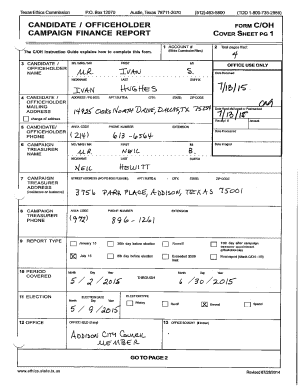 Texas Ethics Commission P.O. Box 12070 Austin, Texas 78711-2070 (512) 463-5800 (TDD 1-800-735-2989)
CANDIDATE / OFFICEHOLDER
CAMPAIGN FINANCE REPORT
FORM C/OH
COVER SHEET PG 1
The C/OH Instruction Guide explains how to complete this form.
1 ACCOUNT #
(Ethics Commission Filers)
2 Total pages filed:
4
3 CANDIDATE / OFFICEHOLDER NAME
MS / MRS / MR FIRST MI
MR. IVAN S.
NICKNAME LAST SUFFIX
IVAN HUGHES
OFFICE USE ONLY
Date Received
7/13/15
4 CANDIDATE / OFFICEHOLDER MAILING ADDRESS
change of address
ADDRESS / PO BOX; APT / SUITE #; CITY; STATE; ZIP CODE
14925 OAKS NORTH DRIVE, DALLAS, TX 75254
7/13/15
5 CANDIDATE/ OFFICEHOLDER PHONE
AREA CODE PHONE NUMBER EXTENSION
(214) 613-6564
Receipt # Amount
Date Processed
6 CAMPAIGN TREASURER NAME
MS / MRS / MR FIRST MI
MR. NEIL
NICKNAME LAST SUFFIX
NEIL HEWITT
Date Imaged
7 CAMPAIGN TREASURER ADDRESS
(residence or business)
STREET ADDRESS (NO PO BOX PLEASE); APT / SUITE #; CITY; STATE; ZIP CODE
3756 PARK PLACE, ADDISON, TEXAS 75001
8 CAMPAIGN TREASURER PHONE
AREA CODE PHONE NUMBER EXTENSION
(972) 896-1261
9 REPORT TYPE
January 15 30th day before election Runoff 15th day after campaign treasurer appointment (officeholder only)
July 15 8th day before election Exceeded $500 limit Final report (Attach C/OH - FR)
10 PERIOD COVERED
Month Day Year Month Day Year
5 / 2 / 2015 THROUGH 6 / 30 / 2015
11 ELECTION
ELECTION DATE
Month Day Year
5 / 9 / 2015
ELECTION TYPE
Primary Runoff General Special
12 OFFICE
OFFICE HELD (if any)
ADDISON CITY COUNCIL
MEMBER
13 OFFICE SOUGHT (if known)
GO TO PAGE 2
www.ethics.state.tx.us